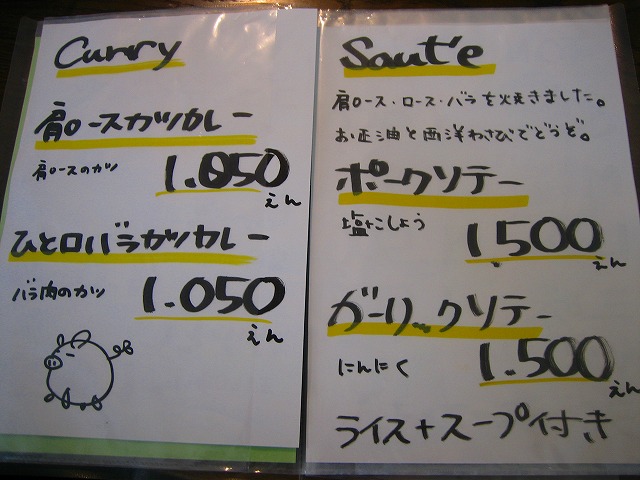 Curry
肩ロースカツカレー
肩ロースのカツ
1.050
えん
ひと口バラカツカレー
バラ肉のカツ
1.050
えん
Saut'e
肩ロース・ロース・バラを焼きました。
お正油と西洋わさびでどうぞ。
ポークソテー
塩こしょう
1.500
えん
ガーリックソテー
にんにく
1.500
えん
ライス+スープ付き